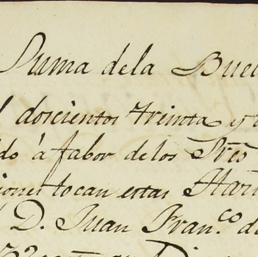 Suma dela Buel
doscientos treinta y
do à fabor de los Sres
iones tocan estas Har
D. Juan Fran.co de